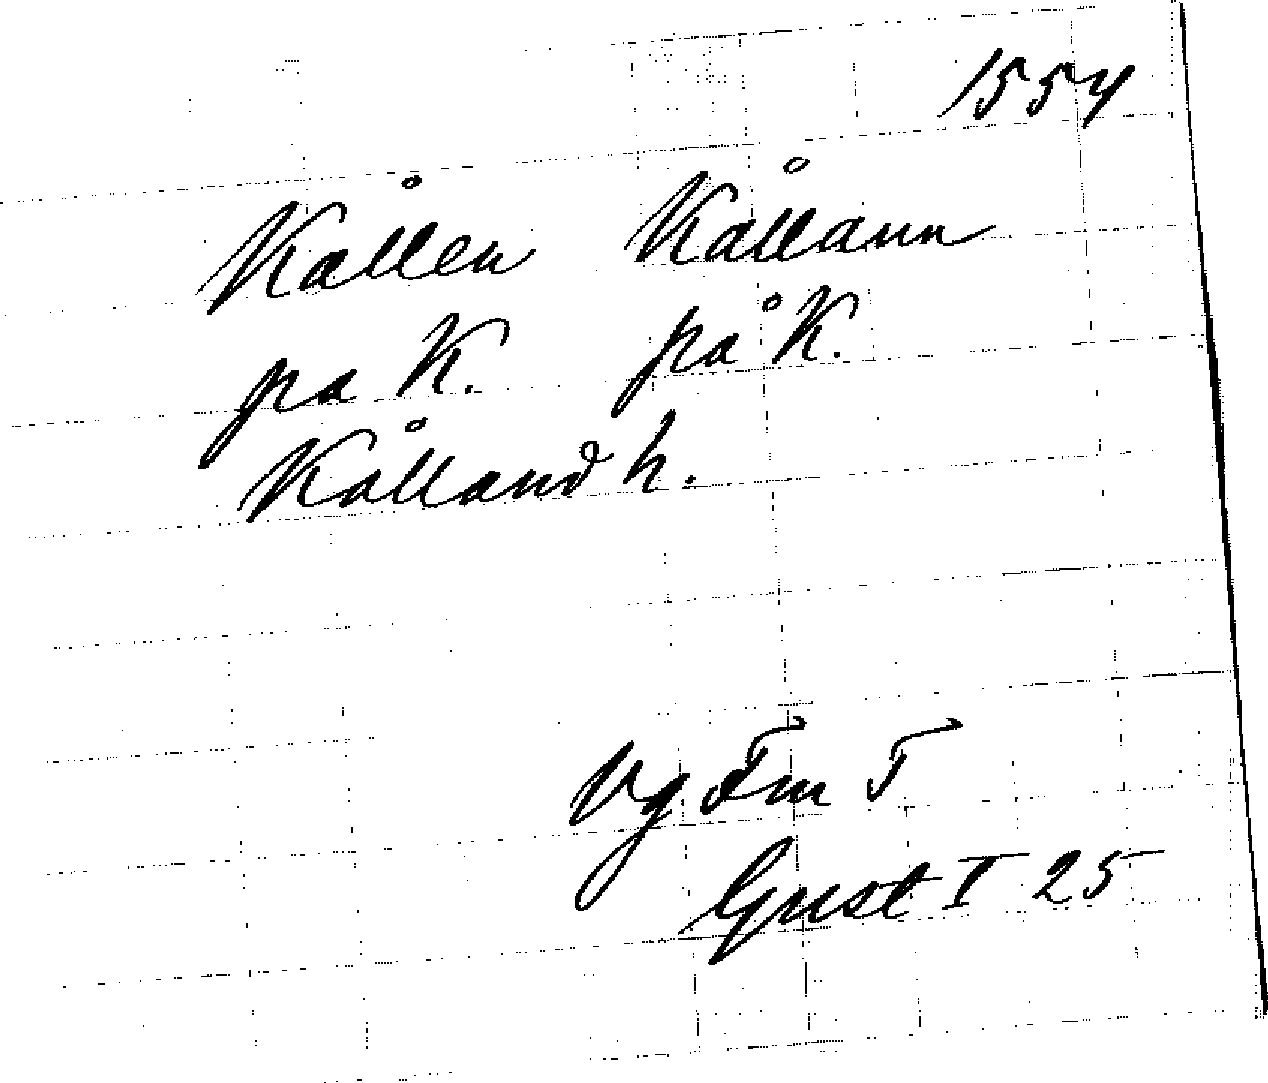 1554
Kållen Kållann
pa K. på K.
Kålland h.
Vg Fm F
Gust I 25